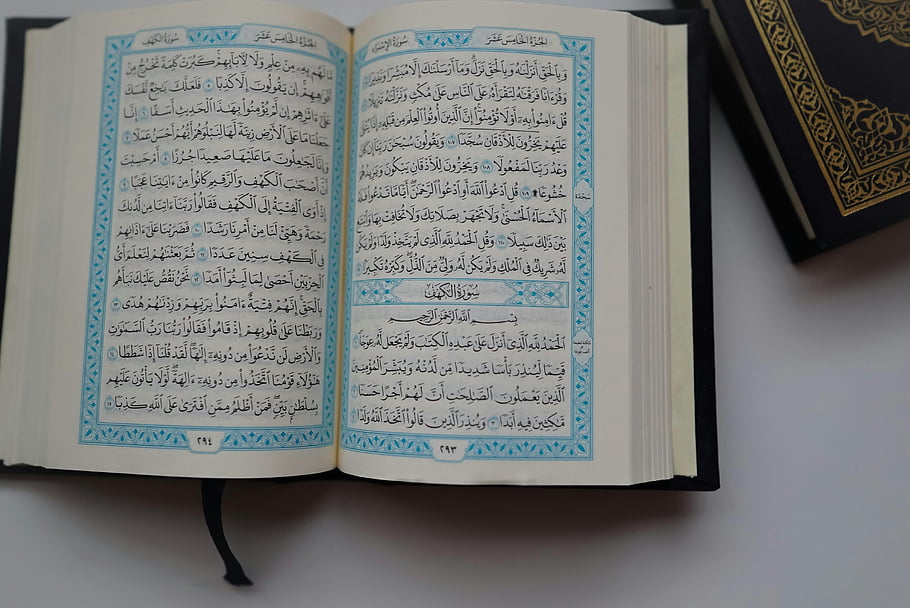 سُورَةُ الإِسْرَاءِ الجُزْءُ الخَامِسَ عَشَرَ
وَبِٱلْحَقِّ أَنزَلْنَٰهُ وَبِٱلْحَقِّ نَزَلَ وَمَآ أَرْسَلْنَٰكَ إِلَّا مُبَشِّرًا وَنَذِيرًا
وَقُرْءَانًا فَرَقْنَٰهُ لِتَقْرَأَهُۥ عَلَى ٱلنَّاسِ عَلَىٰ مُكْثٍ وَنَزَّلْنَٰهُ تَنزِيلًا
قُلْ ءَامِنُوا۟ بِهِۦٓ أَوْ لَا تُؤْمِنُوٓا۟ إِنَّ ٱلَّذِينَ أُوتُوا۟ ٱلْعِلْمَ مِن قَبْلِهِۦٓ إِذَا يُتْلَىٰ
عَلَيْهِمْ يَخِرُّونَ لِلْأَذْقَانِ سُجَّدًا ١٠٧ وَيَقُولُونَ سُبْحَٰنَ رَبِّنَآ إِن كَانَ
وَعْدُ رَبِّنَا لَمَفْعُولًا ١٠٨ وَيَخِرُّونَ لِلْأَذْقَانِ يَبْكُونَ وَيَزِيدُهُمْ
خُشُوعًا ۩ ١٠٩ قُلِ ٱدْعُوا۟ ٱللَّهَ أَوِ ٱدْعُوا۟ ٱلرَّحْمَٰنَ أَيًّا مَّا تَدْعُوا۟ فَلَهُ
ٱلْأَسْمَآءُ ٱلْحُسْنَىٰ وَلَا تَجْهَرْ بِصَلَاتِكَ وَلَا تُخَافِتْ بِهَا وَٱبْتَغِ
بَيْنَ ذَٰلِكَ سَبِيلًا ١١٠ وَقُلِ ٱلْحَمْدُ لِلَّهِ ٱلَّذِى لَمْ يَتَّخِذْ وَلَدًا وَلَمْ يَكُن
لَّهُۥ شَرِيكٌ فِى ٱلْمُلْكِ وَلَمْ يَكُن لَّهُۥ وَلِىٌّ مِّنَ ٱلذُّلِّ وَكَبِّرْهُ تَكْبِيرًا
سُورَةُ الكَهْفِ
بِسْمِ ٱللَّهِ ٱلرَّحْمَٰنِ ٱلرَّحِيمِ
ٱلْحَمْدُ لِلَّهِ ٱلَّذِىٓ أَنزَلَ عَلَىٰ عَبْدِهِ ٱلْكِتَٰبَ وَلَمْ يَجْعَل لَّهُۥ عِوَجَا
قَيِّمًا لِّيُنذِرَ بَأْسًا شَدِيدًا مِّن لَّدُنْهُ وَيُبَشِّرَ ٱلْمُؤْمِنِينَ
ٱلَّذِينَ يَعْمَلُونَ ٱلصَّٰلِحَٰتِ أَنَّ لَهُمْ أَجْرًا حَسَنًا
مَّٰكِثِينَ فِيهِ أَبَدًا ٣ وَيُنذِرَ ٱلَّذِينَ قَالُوا۟ ٱتَّخَذَ ٱللَّهُ وَلَدًا
٢٩٣
الجُزْءُ الخَامِسَ عَشَرَ سُورَةُ الكَهْفِ
مَّا لَهُم بِهِۦ مِنْ عِلْمٍ وَلَا لِءَابَآئِهِمْ كَبُرَتْ كَلِمَةً تَخْرُجُ مِنْ
أَفْوَٰهِهِمْ إِن يَقُولُونَ إِلَّا كَذِبًا ٥ فَلَعَلَّكَ بَٰخِعٌ نَّفْسَكَ
عَلَىٰٓ ءَاثَٰرِهِمْ إِن لَّمْ يُؤْمِنُوا۟ بِهَٰذَا ٱلْحَدِيثِ أَسَفًا ٦ إِنَّا
جَعَلْنَا مَا عَلَى ٱلْأَرْضِ زِينَةً لَّهَا لِنَبْلُوَهُمْ أَيُّهُمْ أَحْسَنُ عَمَلًا ٧
وَإِنَّا لَجَٰعِلُونَ مَا عَلَيْهَا صَعِيدًا جُرُزًا ٨ أَمْ حَسِبْتَ
أَنَّ أَصْحَٰبَ ٱلْكَهْفِ وَٱلرَّقِيمِ كَانُوا۟ مِنْ ءَايَٰتِنَا عَجَبًا ٩
إِذْ أَوَى ٱلْفِتْيَةُ إِلَى ٱلْكَهْفِ فَقَالُوا۟ رَبَّنَآ ءَاتِنَا مِن لَّدُنكَ
رَحْمَةً وَهَيِّئْ لَنَا مِنْ أَمْرِنَا رَشَدًا ١٠ فَضَرَبْنَا عَلَىٰٓ ءَاذَانِهِمْ
فِى ٱلْكَهْفِ سِنِينَ عَدَدًا ١١ ثُمَّ بَعَثْنَٰهُمْ لِنَعْلَمَ أَىُّ
ٱلْحِزْبَيْنِ أَحْصَىٰ لِمَا لَبِثُوٓا۟ أَمَدًا ١٢ نَّحْنُ نَقُصُّ عَلَيْكَ نَبَأَهُم
بِٱلْحَقِّ إِنَّهُمْ فِتْيَةٌ ءَامَنُوا۟ بِرَبِّهِمْ وَزِدْنَٰهُمْ هُدًى ١٣
وَرَبَطْنَا عَلَىٰ قُلُوبِهِمْ إِذْ قَامُوا۟ فَقَالُوا۟ رَبُّنَا رَبُّ ٱلسَّمَٰوَٰتِ
وَٱلْأَرْضِ لَن نَّدْعُوَا۟ مِن دُونِهِۦٓ إِلَٰهًا لَّقَدْ قُلْنَآ إِذًا شَطَطًا ١٤
هَٰٓؤُلَآءِ قَوْمُنَا ٱتَّخَذُوا۟ مِن دُونِهِۦٓ ءَالِهَةً لَّوْلَا يَأْتُونَ عَلَيْهِم
بِسُلْطَٰنٍۭ بَيِّنٍ فَمَنْ أَظْلَمُ مِمَّنِ ٱفْتَرَىٰ عَلَى ٱللَّهِ كَذِبًا ١٥
٢٩٤